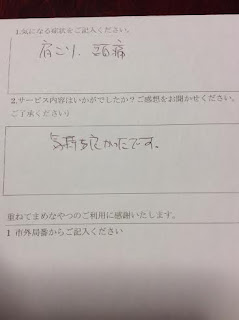 1.気になる症状をご記入ください。
肩こり、頭痛
2.サービス内容はいかがでしたか？ご感想をお聞かせください。
ご了承ください）
気持ち良かったです。
重ねてまめなやつのご利用に感謝いたします。
I 市外局番からご記入ください